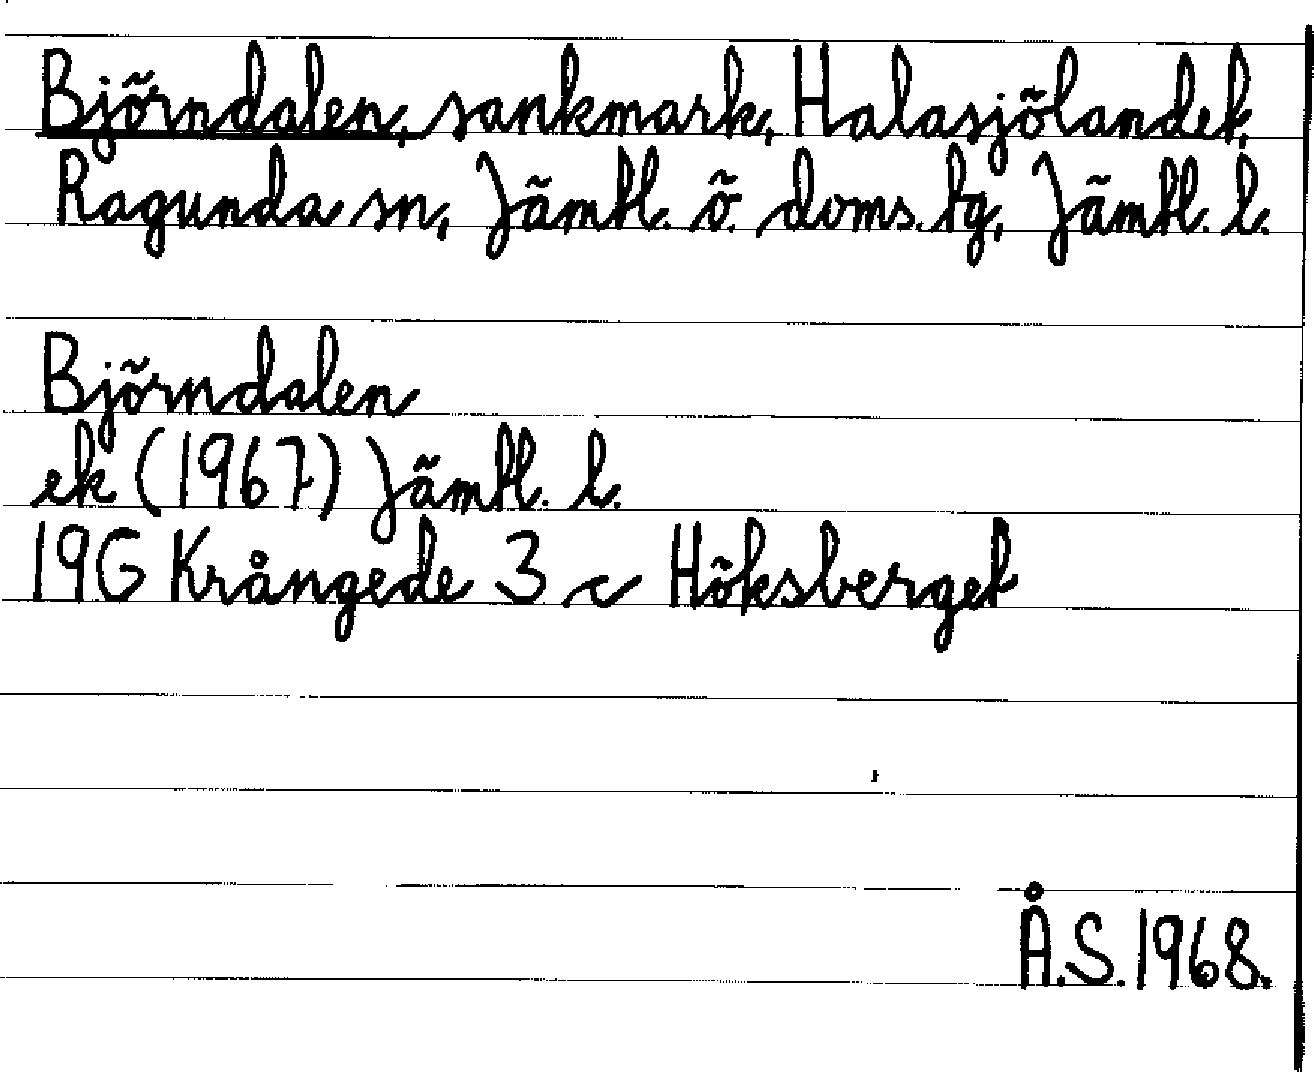 Björndalen, sankmark, Halasjölandet,
Ragunda sn, Jämtl. ö. doms. tg, Jämtl. l.
Björndalen
ek (1967) Jämtl. l.
19G Krångede 3 c Höksberget
Å.S. 1968.